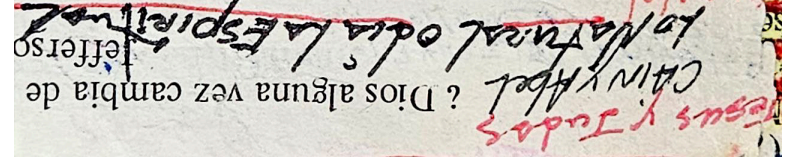 Jesus y Judas
CAIN Y Abel
¿Dios alguna vez cambia de
Jefferso
Lo Natural odia la Espiritual